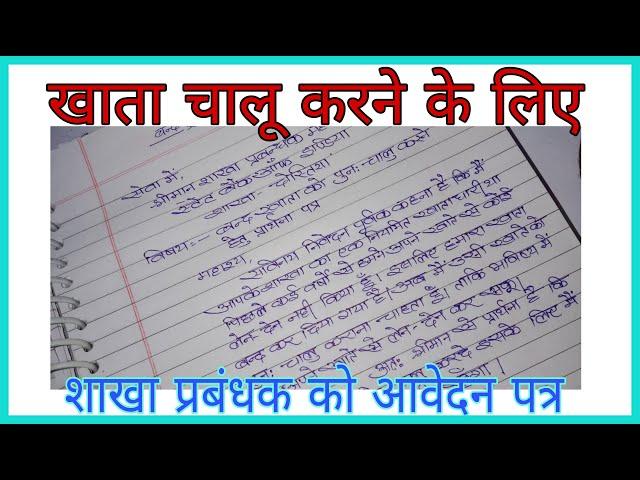 खाता चालू करने के लिए
सेवा में,
श्रीमान शाखा प्रबन्धक
स्टेट बैंक ऑफ इण्डिया
शाखा-
विषय:- बन्द खाता को पुन:-चालु करने
हेतु प्रार्थना पत्र
महाशय,
सविनय निवेदन पूर्वक कहना है कि मैं
आपके शाखा का एक नियमित खाताधारी
पिछले कई वर्षों से हमने अपने खाते से कोई
लेन-देन नहीं किया हूँ। इसलिए हमारा खाता
बन्द कर दिया गया है। अब मैं उसी खाते को
चालु कराना चाहता हूँ। ताकि भविष्य में
खाते से लेन-देन कर सकूं।
अत: श्रीमान से प्रार्थना है कि
इसके लिए मैं
शाखा प्रबंधक को आवेदन पत्र